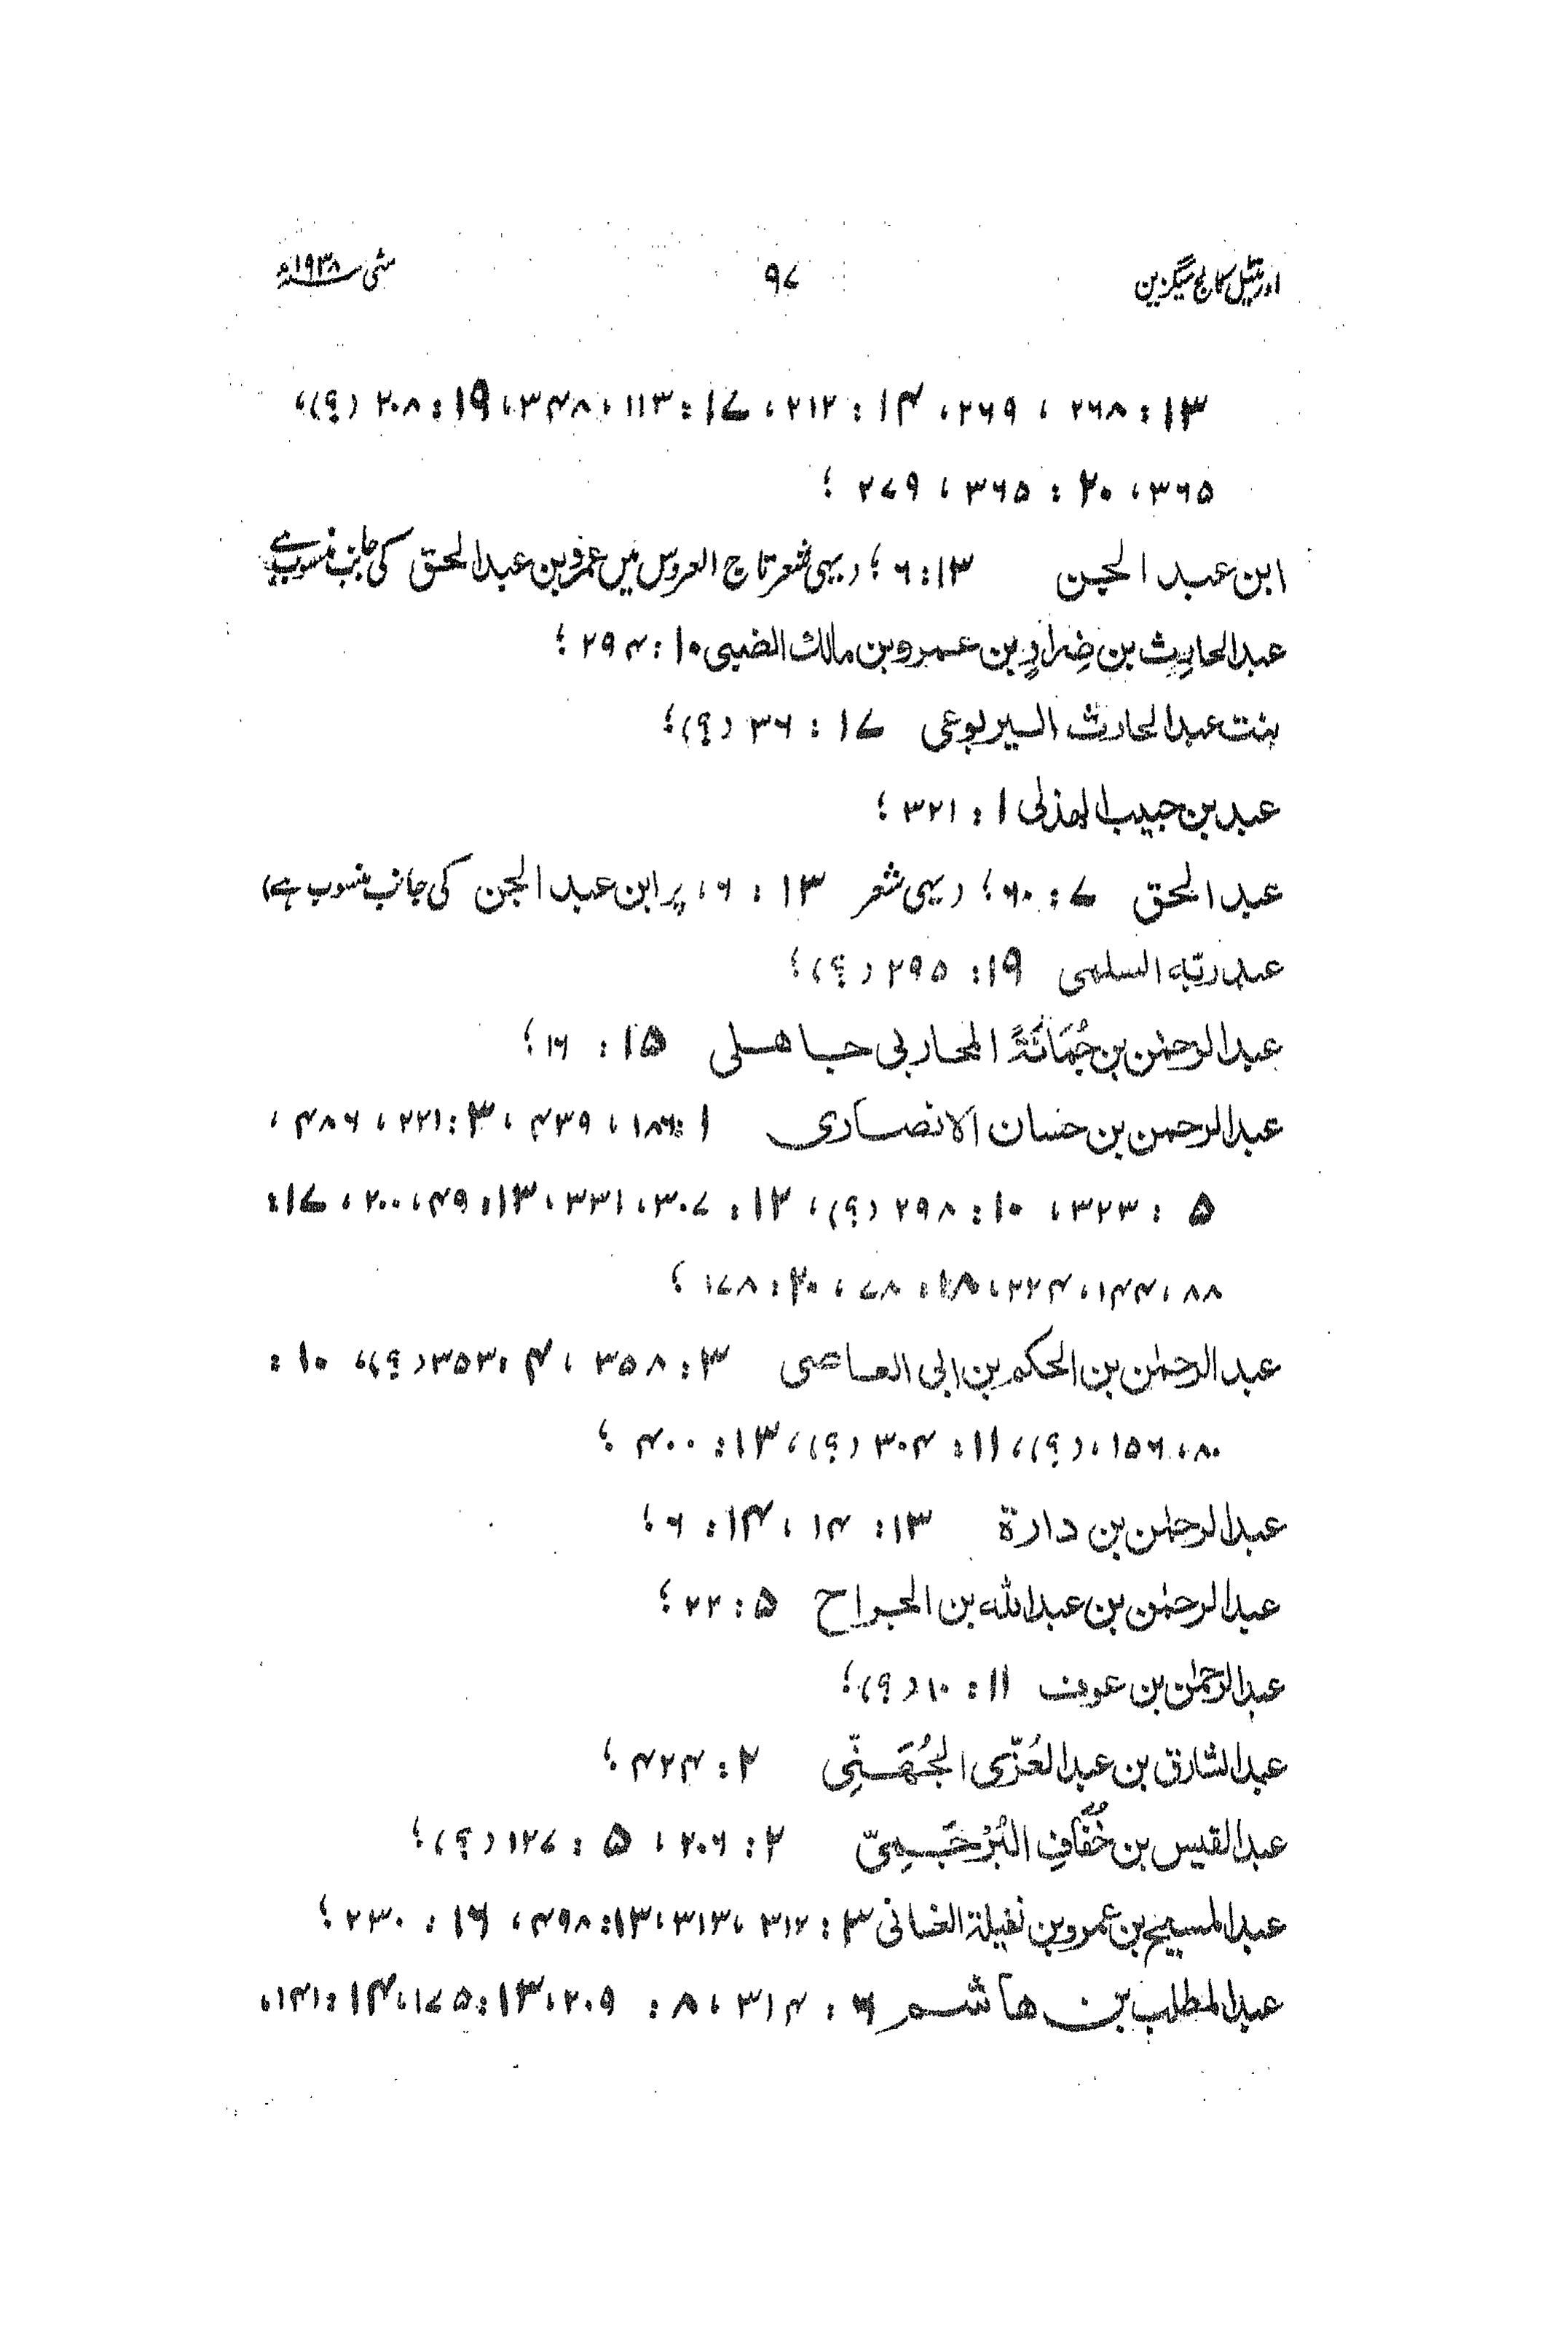 اورینٹیل کالج میگزین ۹۷ مئی سنہ ۱۹۳۸ء
۱۳ : ۲۶۸ ، ۲۶۹ ، ۱۴ : ۲۱۲ ، ۱۷ : ۱۱۳ ، ۳۴۸ ، ۱۹ : ۲۰۸ (؟)،
۳۶۵ ، ۲۰ : ۳۶۵ ، ۲۷۹ ؛
ابن عبد الجن ۱۳ : ۶ ؛ (یہی شعر تاج العروس میں عمرو بن عبد الحق کی جانب منسوب ہے
عبد الحارِث بن ضِرارِ بن عمرو بن مالك الضبی ۱۰ : ۲۹۴ ؛
بنت عبد الحارث الیربوعی ۱۷ : ۳۶ (؟)؛
عبد بن حبیب الهذلی ۱ : ۳۲۱ ؛
عبد الحق ۷ : ۶۰ ؛ (یہی شعر ۱۳ : ۶ ، پر ابن عبد الجن کی جانب منسوب ہے)
عبد ربّه السلمی ۱۹ : ۲۹۵ (؟)؛
عبد الرحمٰن بن جُمَانَةَ المحاربی جاهلی ۱۵ : ۱۶ ؛
عبد الرحمن بن حسان الانصاری ۱ : ۱۸۶ ، ۴۳۹ ، ۳ : ۲۲۱ ، ۴۸۶ ،
۵ : ۳۲۳ ، ۱۰ : ۲۹۸ (؟)، ۱۲ : ۳۰۷ ، ۳۳۱ ، ۱۳ : ۴۹ ، ۲۰۰ ، ۱۷ :
۸۸ ، ۱۴۴ ، ۲۲۴ ، ۱۸ : ۷۸ ، ۲۰ : ۱۷۸ ؛
عبد الرحمٰن بن الحکم بن ابی العاصی ۳ : ۳۵۸ ، ۴ : ۳۵۳ (؟)، ۱۰ :
۸۰ ، ۱۵۶ ، (؟)، ۱۱ : ۳۰۴ (؟)، ۱۳ : ۴۰۰ ؛
عبد الرحمٰن بن دارة ۱۳ : ۱۴ ، ۱۴ : ۶ ؛
عبد الرحمٰن بن عبد الله بن الجراح ۵ : ۲۲ ؛
عبد الرحمٰن بن عوف ۱۱ : ۱۰ (؟)؛
عبد الشارق بن عبد العُزّی الجُهَنِّی ۲ : ۴۲۴ ؛
عبد القیس بن خُفَافِ البُرْجَمِیّ ۲ : ۲۰۶ ، ۵ : ۱۲۷ (؟)؛
عبد المسیح بن عمرو بن نفیلة الغسانی ۳ : ۳۱۲ ، ۳۱۳ ، ۱۳ : ۴۹۸ ، ۱۶ ، ۲۳۰ ؛
عبد المطلب بن هاشم ۶ : ۳۱۴ ، ۸ : ۲۰۹ ، ۱۳ : ۱۷۵ ، ۱۴ : ۱۴۱ ،